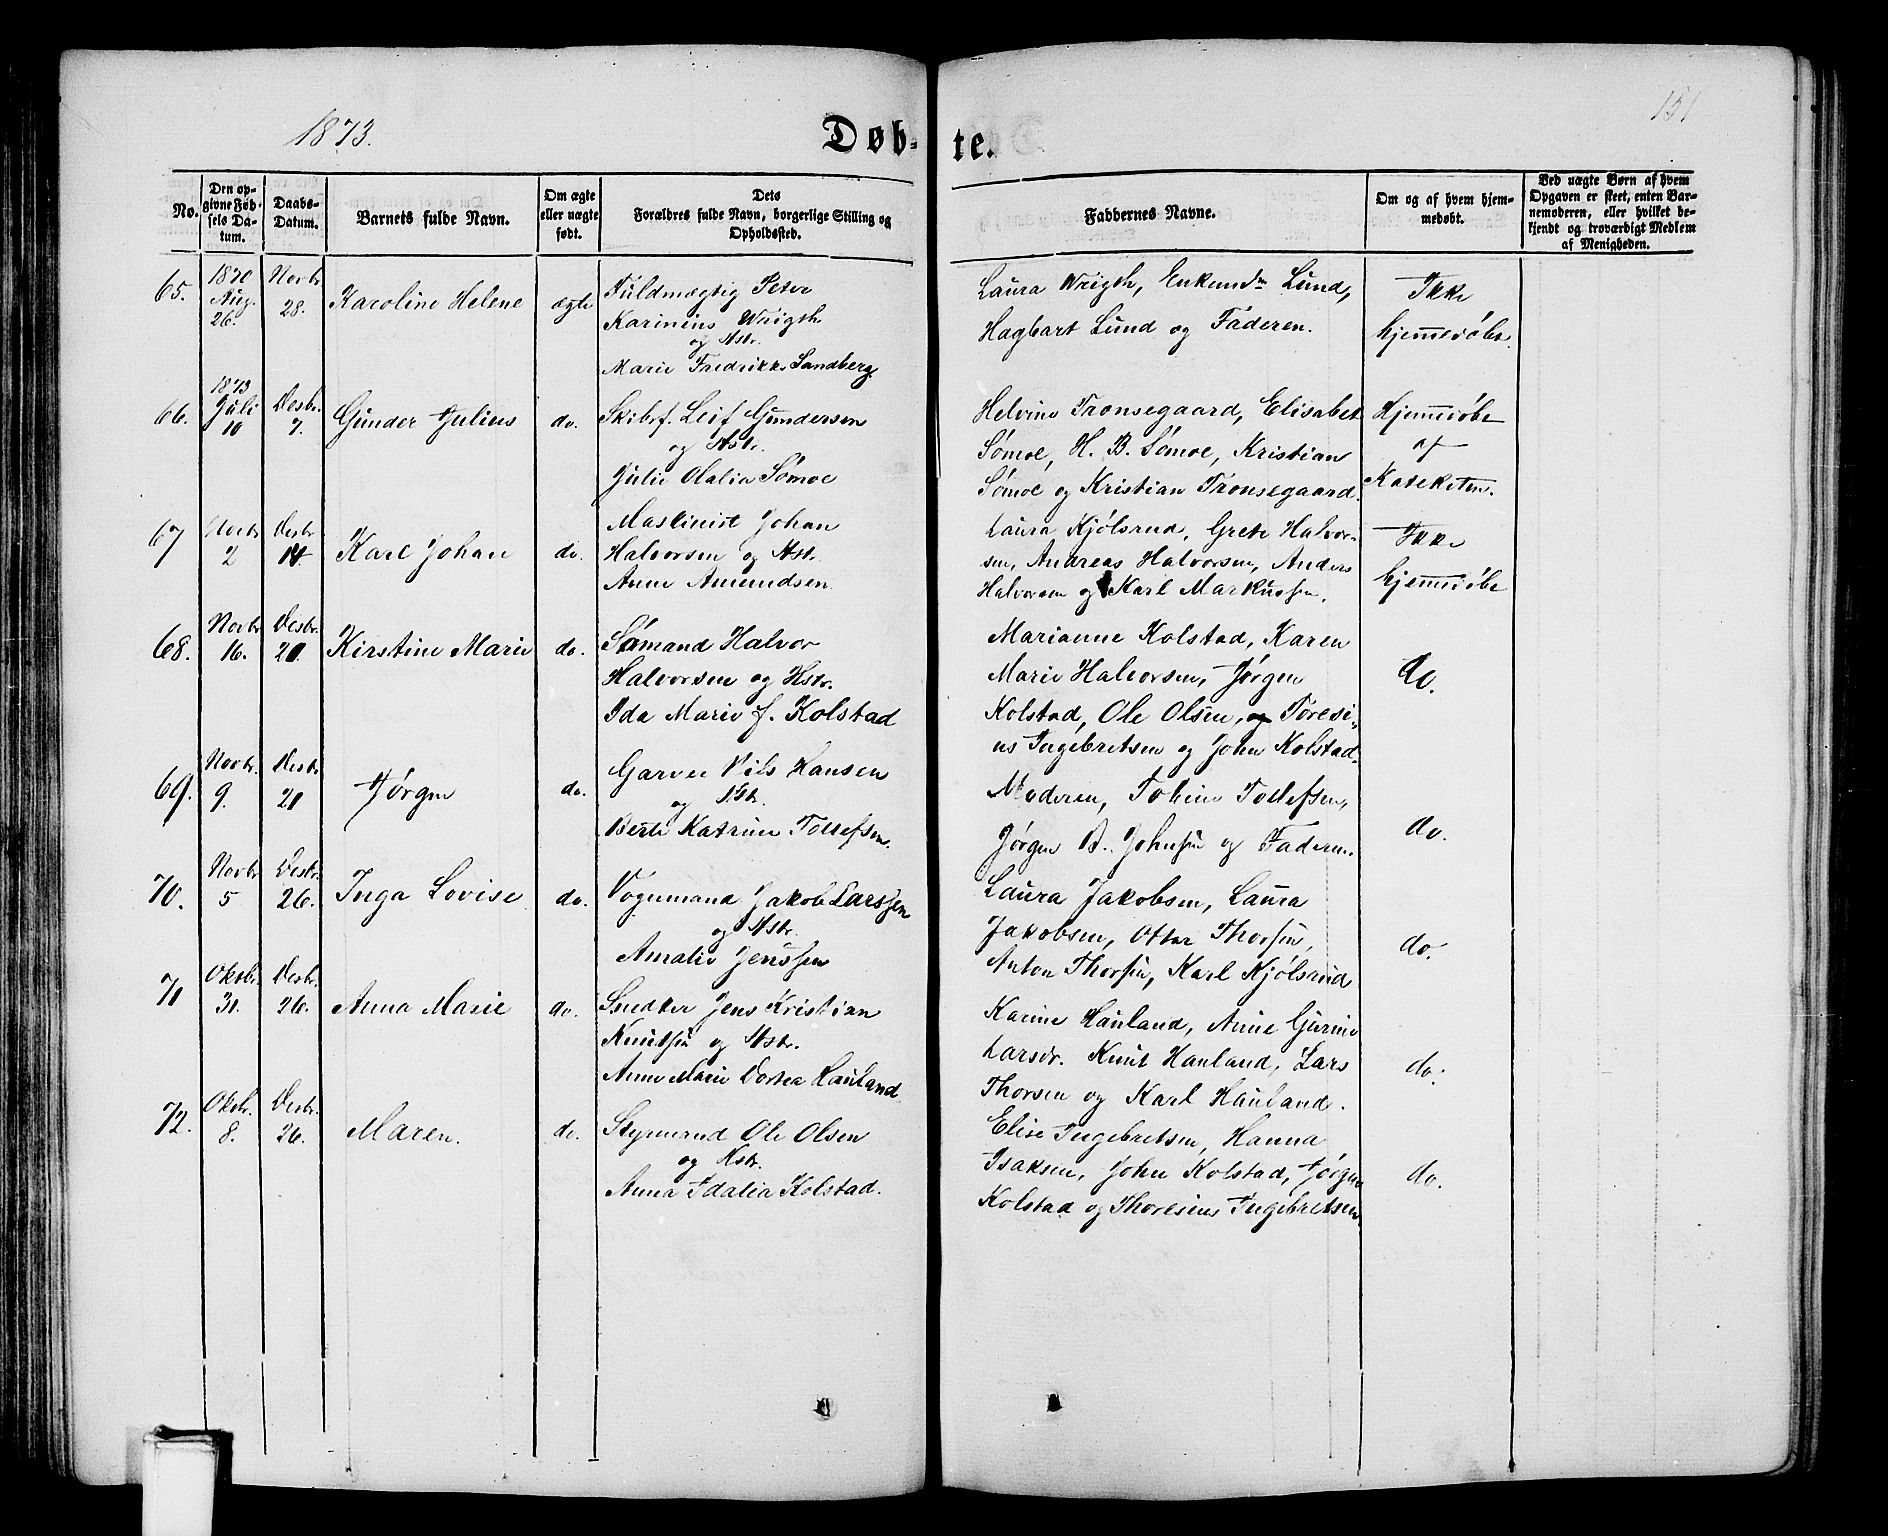 1873.
151
Døb-
te.
No.
Den op-
givne Fød-
sels Da-
tum.
Daabs-
Datum.
Barnets fulde Navn.
Om ægte
eller uægte
født.
Dets
Forældres fulde Navn, borgerlige Stilling og
Opholdssted.
Faddernes Navne.
Om og af hvem hjem-
medøbt.
Ved uægte Børn af hvem
Opgaven er skeet, enten Bar-
nemoderen, eller hvilket be-
kjendt og troværdigt Medlem
af Menigheden.
65.
1870
Aug.
26.
Novbr
28.
Karoline Helene
ægte
Fuldmægtig Peter
Karinius Wrigth
og Hstr.
Marie Fredrikke Sandberg
Laura Wrigth, Enkemdm Lund,
Hagbart Lund og Faderen.
Ikke
hjemmedøbt.
66.
1873
Juli
10
Desbr.
7.
Gunder Julius
do.
Skibsf. Leif Gundersen
og Hstr.
Julie Olalia Sømoe
Helvine Tronsegaard, Elisabet
Sømoe, H. B. Sømoe, Kristian
Sømoe og Kristian Tronsegaard.
Hjemmedøbt
af
Kateketen.
67
Novbr
2
Desbr
14.
Karl Johan
do.
Maskinist Johan
Halvorsen og Hstr.
Anne Amundsen
Laura Kjølsrud, Grete Halvor-
sen, Andreas Halvorsen, Anders
Halvorsen og Karl Markussen.
Ikke
hjemmedøbt
68.
Novbr
16.
Desbr.
21.
Kirstine Marie
do.
Sømand Halvor
Halvorsen og Hstr.
Ida Marie f. Kolstad
Marianne Kolstad, Karen
Marie Halvorsen, Jørgen
Kolstad, Ole Olsen, og Toresi-
us Ingebretsen og John Kolstad.
do.
69.
Novbr.
9.
Desbr
21
Jørgen
do.
Garver Nils Hansen
og Hstr.
Berte Katrine Tollefsen.
Moderen, Tobine Tollefsen,
Jørgen B. Johnsen og Faderen.
do.
70.
Novbr
5
Desbr.
26.
Inga Lovise
do.
Vognmand Jakob Larssen
og Hstr.
Amalie Jenssen
Laura Jakobsen, Laura
Jakobsen, Otter Thorsen,
Anton Thorsen, Karl Kjølsrud
do.
71
Oktbr.
31.
Desbr.
26.
Anna Marie
do.
Snedker Jens Kristian
Knutsen og Hstr.
Anne Marie Dortea Hauland
Karine Hauland, Anne Gurine
Larsdr. Knut Hauland, Lars
Thorsen og Karl Hauland.
do.
72.
Oktbr.
8.
Desbr.
26.
Maren.
do.
Styrmand Ole Olsen
og Hstr.
Anna Idalia Kolstad.
Elise Ingebretsen, Hanna
Isaksen, John Kolstad, Jørgen
Kolstad og Thoresius Ingebretsen.
do.